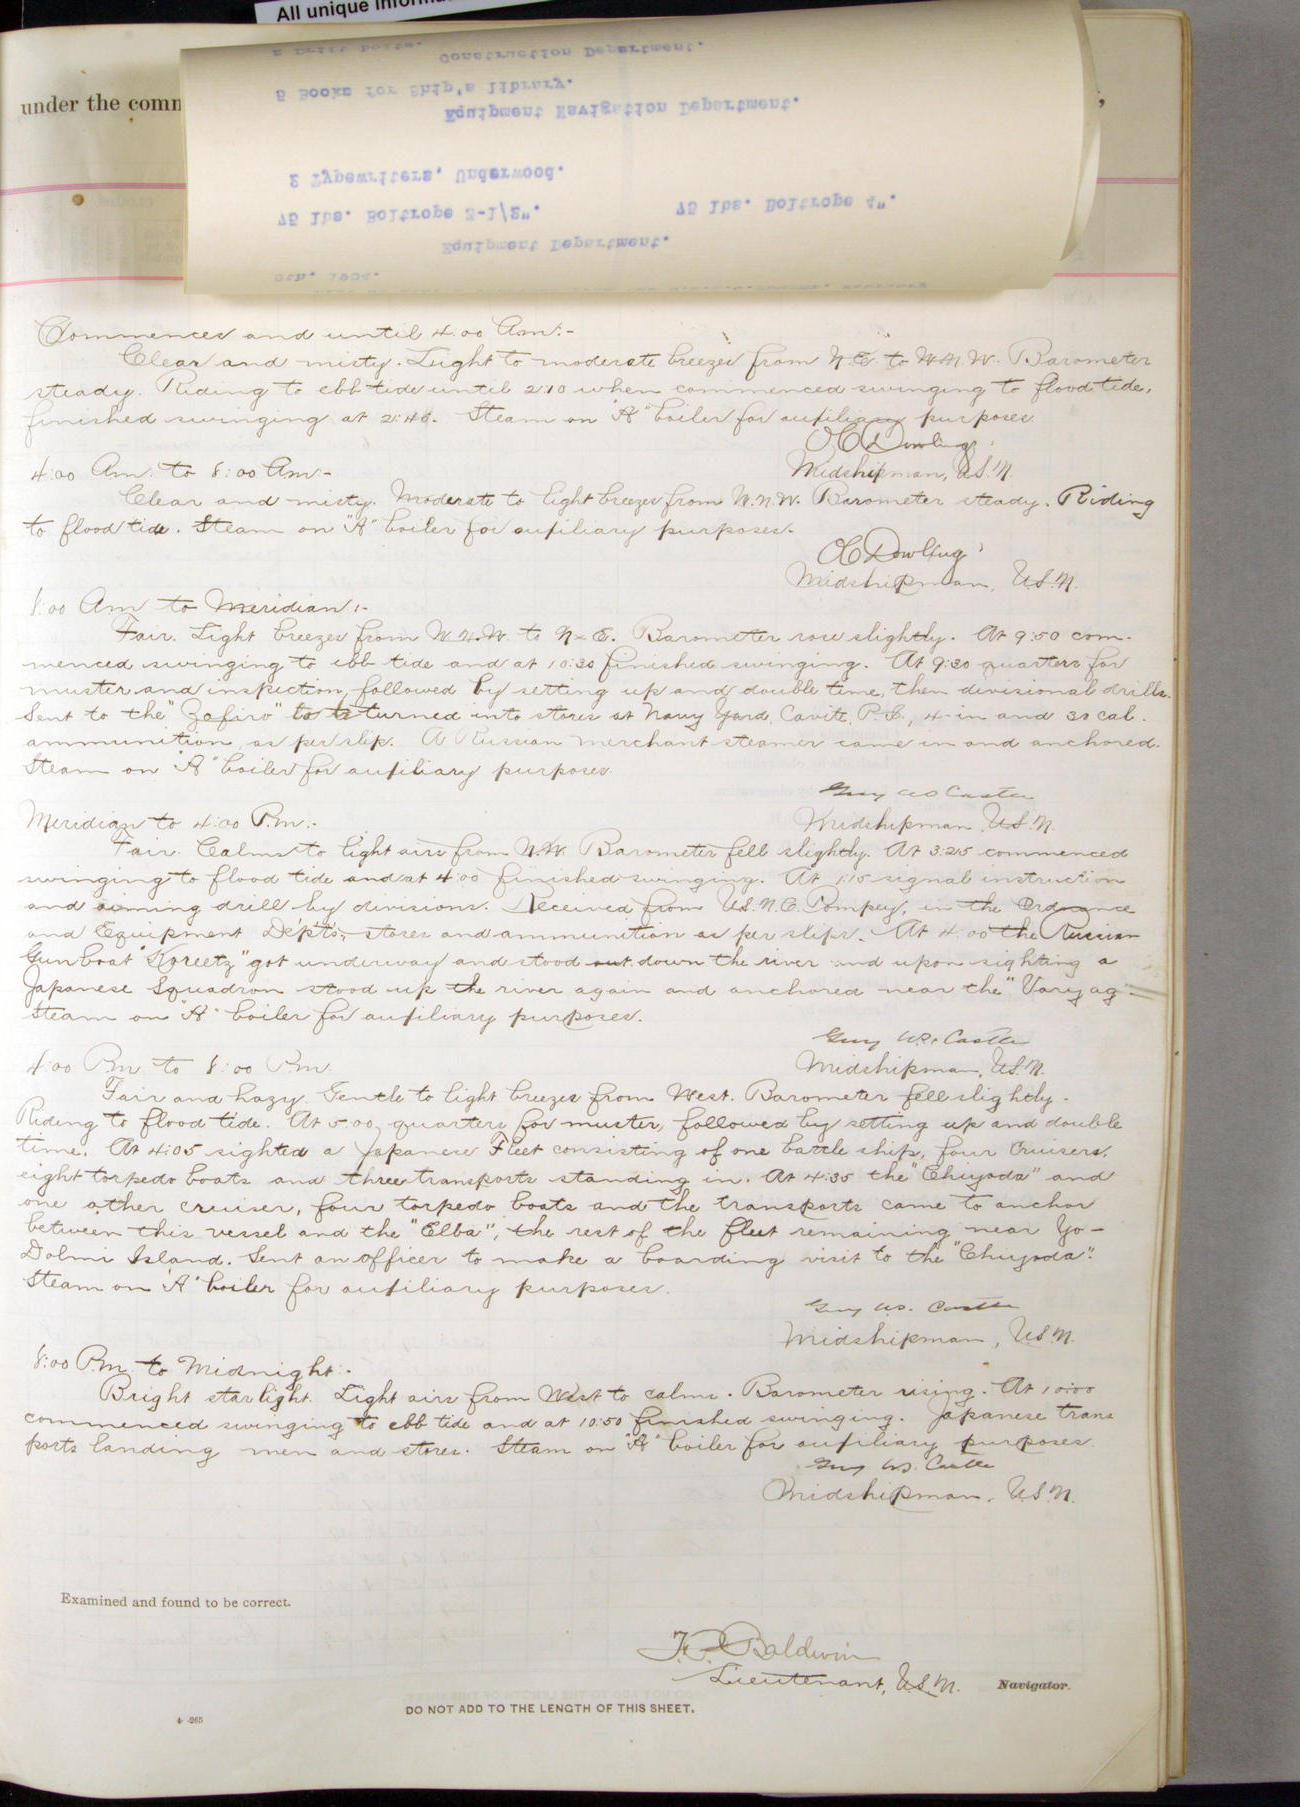 All unique inform
under the comm
Construction Department.
5 Books for Ship's library.
Equipment Navigation Department.
2 Typewriters, Underwood.
75 lbs. Boltrope 3-1/2". 75 lbs. Boltrope 4".
Equipment Department.
Commences and until 4:00 Am:-
Clear and misty. Light to moderate breezes from N.E. to W.N.W. Barometer
steady. Riding to ebb tide until 2:10 when commenced swinging to flood tide,
finished swinging at 2:40. Steam on "A" boiler for auxiliary purposes.
O C Dowling,
Midshipman, U.S.N.
4:00 Am. to 8:00 Am:-
Clear and misty. Moderate to light breezes from W.N.W. Barometer steady. Riding
to flood tide. Steam on "A" boiler for auxiliary purposes.
O C Dowling,
Midshipman, U.S.N.
8:00 Am to Meridian:-
Fair. Light breezes from W.N.W. to N x E. Barometer rose slightly. At 9:50 com-
menced swinging to ebb tide and at 10:30 finished swinging. At 9:30 quarters for
muster and inspection, followed by setting up and double time, then divisional drills.
Sent to the "Zafiro" to be turned into stores at Navy Yard, Cavite, P.I., 4-in and 30 cal.
ammunition, as per slip. A Russian merchant steamer came in and anchored.
Steam on "A" boiler for auxiliary purposes.
Guy W S Castle
Midshipman, U.S.N.
Meridian to 4:00 P.m:-
Fair. Calms to light airs from N.W. Barometer fell slightly. At 3:25 commenced
swinging to flood tide and at 4:00 finished swinging. At 1:15 signal instruction
and aiming drill by divisions. Received from U.S.N.C. Pompey, in the Ordnance
and Equipment Dépts, stores and ammunition as per slips. At 4:00 the Russian
Gunboat "Koreetz" got underway and stood out down the river and upon sighting a
Japanese Squadron stood up the river again and anchored near the "Varyag".
Steam on "A" boiler for auxiliary purposes.
Guy W.S. Castle
Midshipman, U.S.N.
4:00 P.m. to 8:00 P.m.
Fair and hazy. Gentle to light breezes from West. Barometer fell slightly.
Riding to flood tide. At 5:00, quarters for muster, followed by setting up and double
time. At 4:05 sighted a Japanese Fleet consisting of one battle ship, four Cruisers,
eight torpedo boats and three transports standing in. At 4:35 the "Chiyoda" and
one other cruiser, four torpedo boats and the transports came to anchor
between this vessel and the "Elba", the rest of the fleet remaining near Yo-
Dolmi Island. Sent an officer to make a boarding visit to the "Chiyoda".
Steam on "A" boiler for auxiliary purposes.
Guy W.S. Castle
Midshipman, U.S.N.
8:00 P.m. to Midnight:-
Bright starlight. Light airs from West to calm. Barometer rising. At 10:00
commenced swinging to ebb tide and at 10:50 finished swinging. Japanese trans
ports landing men and stores. Steam on "A" boiler for auxiliary purposes.
Guy W.S. Castle
Midshipman, U.S.N.
Examined and found to be correct.
F.P. Baldwin
Lieutenant, U.S.N. Navigator.
DO NOT ADD TO THE LENGTH OF THIS SHEET.